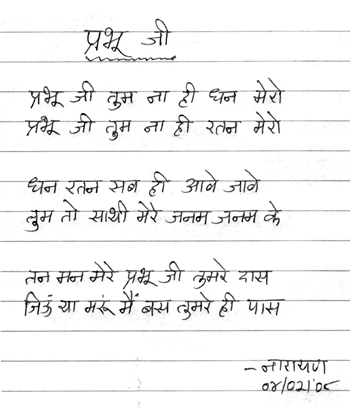 प्रभू जी
प्रभू जी तुम ना ही धन मेरो
प्रभू जी तुम ना ही रतन मेरो
धन रतन सब ही आवे जावे
तुम तो साथी मेरे जनम जनम के
तन मन मेरे प्रभू जी तुमरे दास
जिऊं या मरूं मैं बस तुमरे ही पास
-नारायण